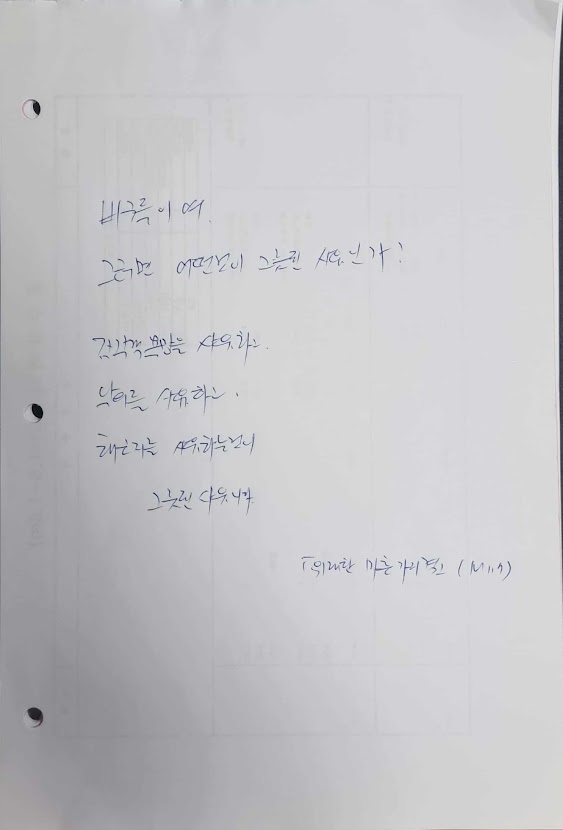 비구들이여.
그러면 어떤것이 그릇된 사유인가?
감각적 욕망을 사유하고.
악의를 사유하고.
해코지를 사유하는것이
그릇된 사유니라
위대한 마흔가지 경 (M117)